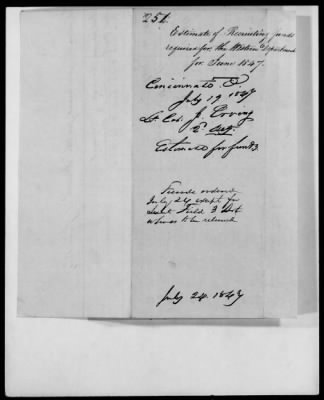 251
Estimate of Recruiting funds
required for the Western Department
for June 1847.
Cincinnati O
July 19 1847
Lt Col. J. Erving
2d Arty.
Estimate for funds.
Funds ordered
July 24 except for
Lieut Field 3 Inf
whose to be returned
July 24. 1847